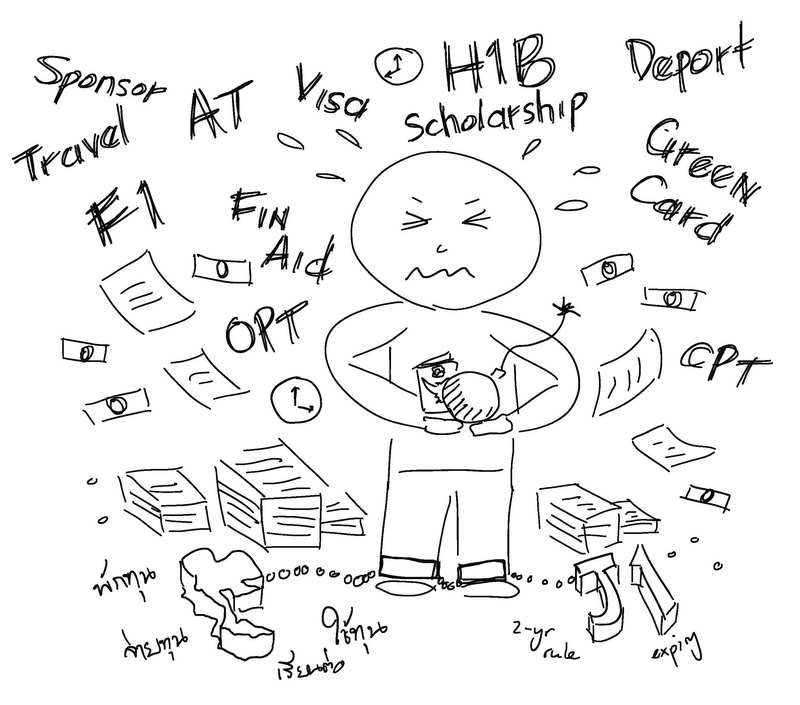 Sponsor
Travel
AT
Visa
H1B
Scholarship
Deport
Green
Card
F1
Fin
Aid
OPT
CPT
พักทุน
ใช้ทุน
เรียนต่อ
J1
2-yr
rule
expiry